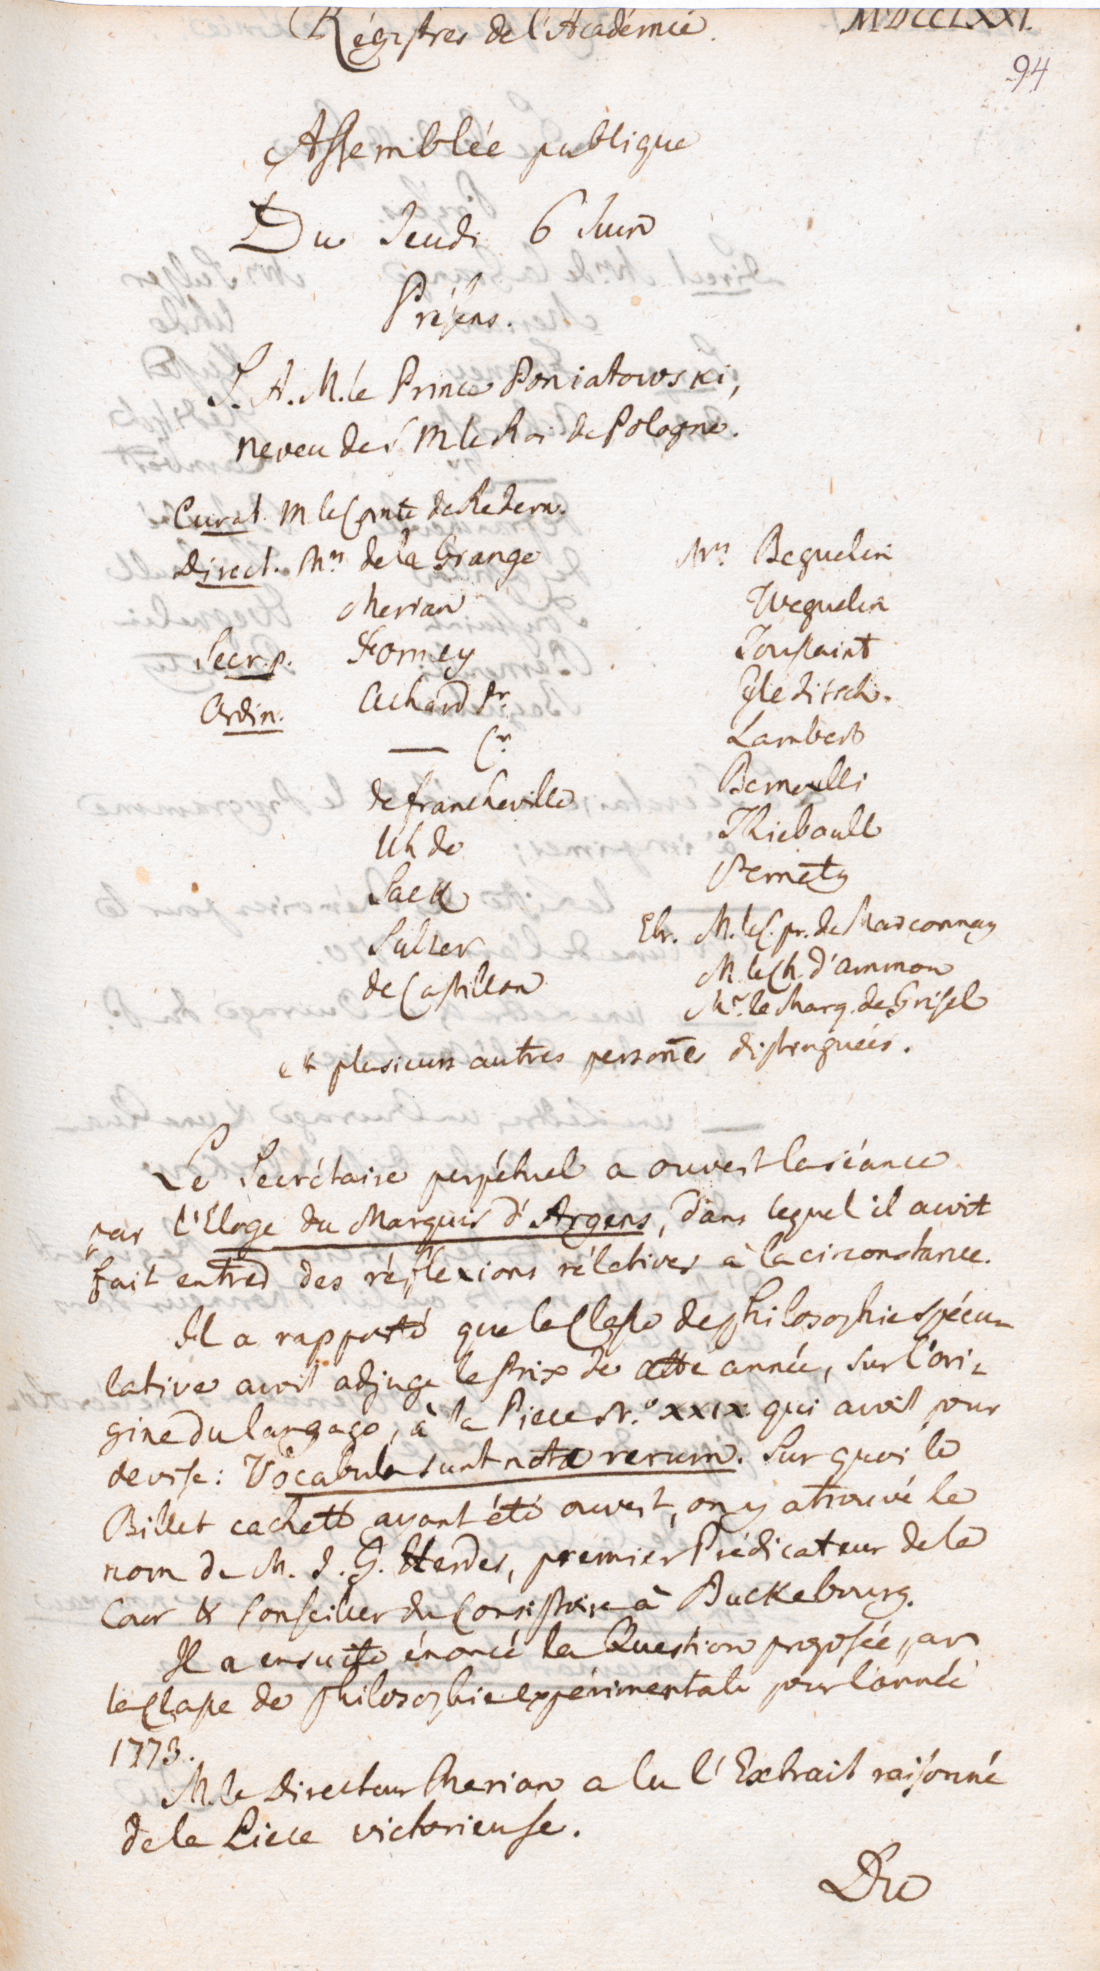 Régistres de l'Académie. MDCCLXXI.
94
Assemblée publique
Du Jeudi 6 Juin
Présens.
S. A. M. le Prince Poniatowski,
neveu de S M le Roi de Pologne.
Curat. M le Comte de Redern.
Direct. Mrs de la Grange
Merian
Secr. p. Formey
Ordin. Achard Pr.
— Cr.
de Francheville
Uhde
Sack
Sulzer
de Castillon
Mrs Beguelin
Weguelin
Toussaint
Gleditsch.
Lambert
Bernoulli
Thiebault
Pernety
Etr. M. le C. pr. de Marconnay
M. le Ch. d'Ammon
Mr. le Marq. de Grisel
et plusieurs autres personēs distinguées.
Le Secrétaire perpétuel a ouvert la séance
par l'Éloge du Marquis d'Argens, dans lequel il avoit
fait entrer des réflexions rélatives à la circonstance.
Il a rapporté que la Classe de Philosophie spécu-
lative avoit adjugé le Prix de cette année, sur l'ori-
gine du langage, à la Piece N.° XXIX. qui avoit pour
devise: Vocabula sunt notæ rerum. Sur quoi le
Billet cacheté ayant été ouvert, on y a trouvé le
nom de M. J. G. Herder, premier Prédicateur de la
Cour & Conseiller du Consistoire à Buckebourg.
Il a ensuite énoncé la Question proposée par
la Classe de Philosophie expérimentale pour l'année
1773.
M. le Directeur Merian a lu l'Extrait raisonné
de la Piece victorieuse.
Du